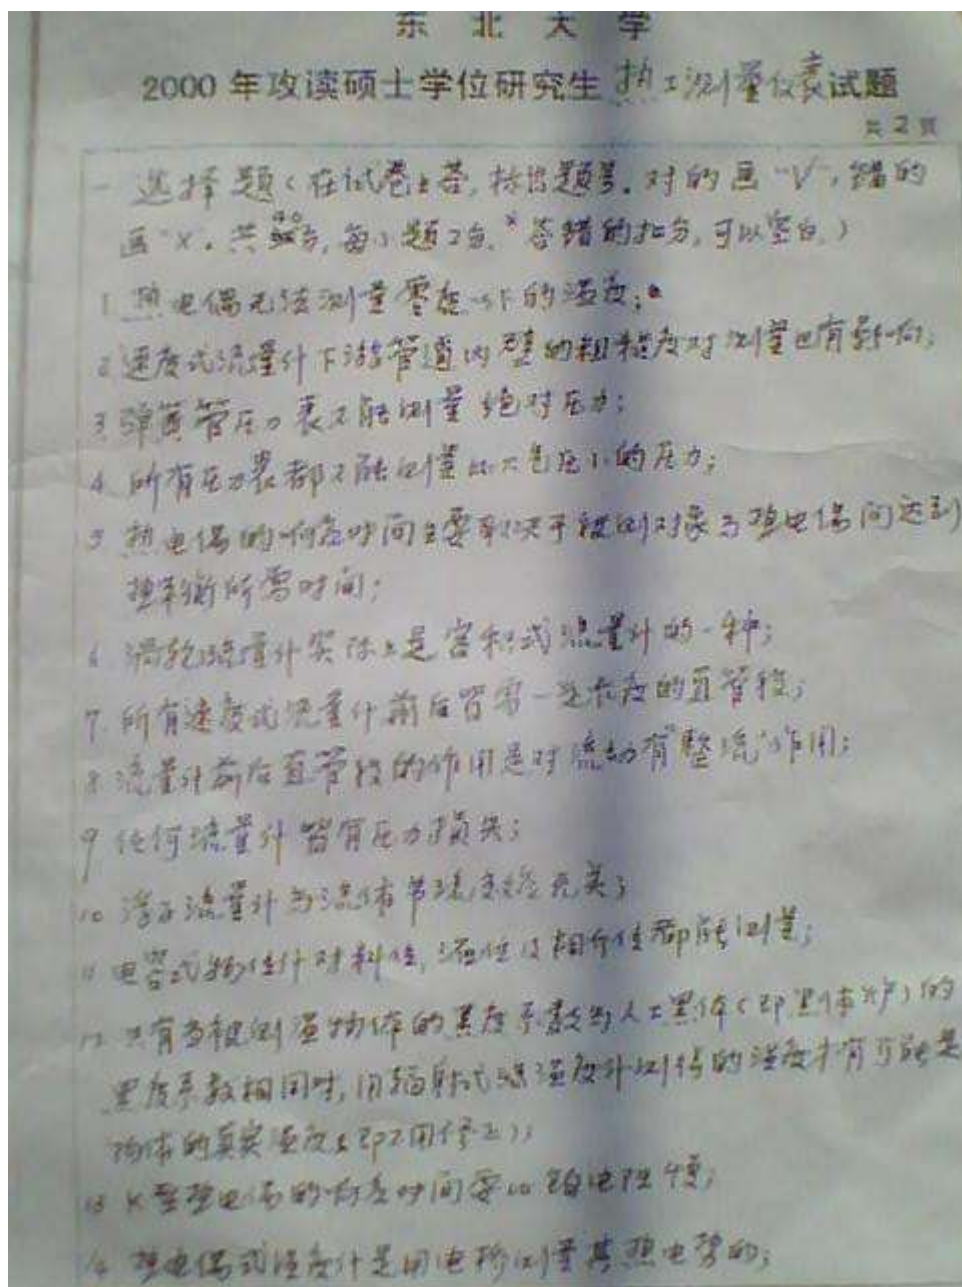 东北大学
2000年攻读硕士学位研究生热工测量仪表试题
共2页
一 选择题(在试卷上答,标出题号.对的画"V",错的
画"X".共 分,每小题2分,*答错的扣分,可以空白.)
1 热电偶无法测量零度以下的温度;
2 速度式流量计下游管道内壁的粗糙度对测量也有影响;
3 弹簧管压力表不能测量绝对压力;
4 所有压力表都不能测量比大气压小的压力;
5 热电偶的响应时间主要取决于被测对象与热电偶间达到
热平衡所需时间;
6 涡轮流量计实际上是容积式流量计的一种;
7 所有速度式流量计前后皆需一定长度的直管段;
8 流量计前后直管段的作用是对流动有"整流"作用;
9 任何流量计皆有压力损失;
10 浮子流量计与流体节流变送无关;
11 电容式物位计对料位,液位及相界位都能测量;
12 只有当被测温物体的黑度系数与人工黑体(即黑体炉)的
黑度系数相同时,用辐射式 温度计测得的温度才有可能是
物体的真实温度(即不用修正);
13 K型热电偶的响应时间要比铂电阻慢;
14 热电偶式温度计是用电桥测量其热电势的;